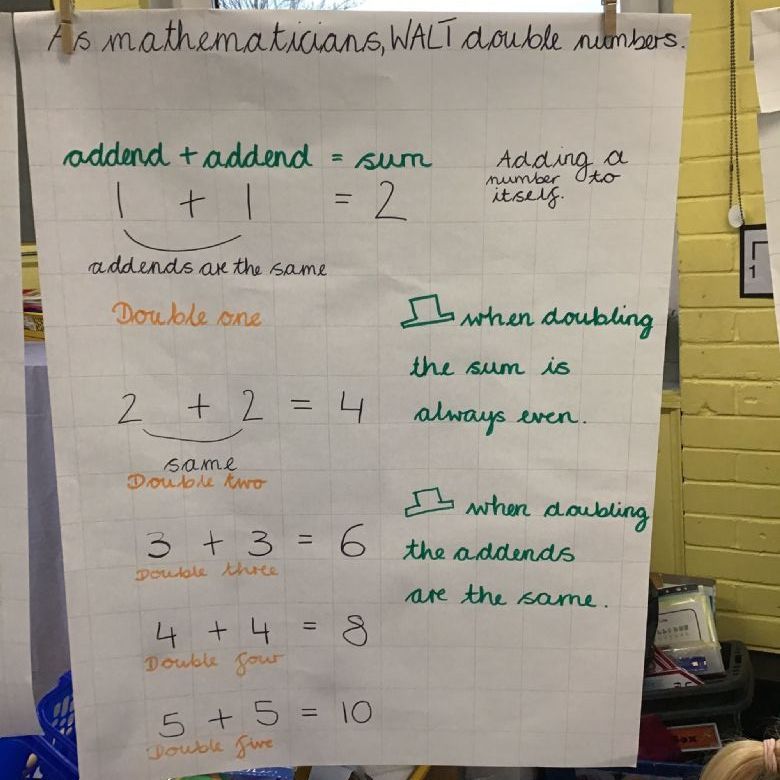 As mathematicians, WALT double numbers.
addend + addend = sum
1 + 1 = 2
addends are the same
Double one
Adding a
number to
itself.
when doubling
the sum is
always even.
2 + 2 = 4
same
Double two
when doubling
the addends
are the same.
3 + 3 = 6
Double three
4 + 4 = 8
Double four
5 + 5 = 10
Double five
1